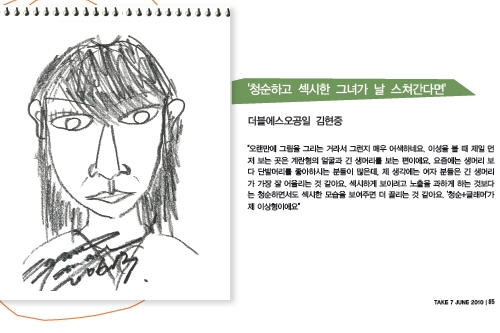 '청순하고 섹시한 그녀가 날 스쳐간다면'
더블에스오공일 김현중
"오랜만에 그림을 그리는 거라서 그런지 매우 어색하네요. 이성을 볼 때 제일 먼
저 보는 곳은 계란형의 얼굴과 긴 생머리를 보는 편이에요. 요즘에는 생머리 보
다 단발머리를 좋아하시는 분들이 많은데, 제 생각에는 여자 분들은 긴 생머리
가 가장 잘 어울리는 것 같아요. 섹시하게 보이려고 노출을 과하게 하는 것보다
는 청순하면서도 섹시한 모습을 보여주면 더 끌리는 것 같아요. '청순+글래머'가
제 이상형이에요"
TAKE 7 JUNE 2010 | 85